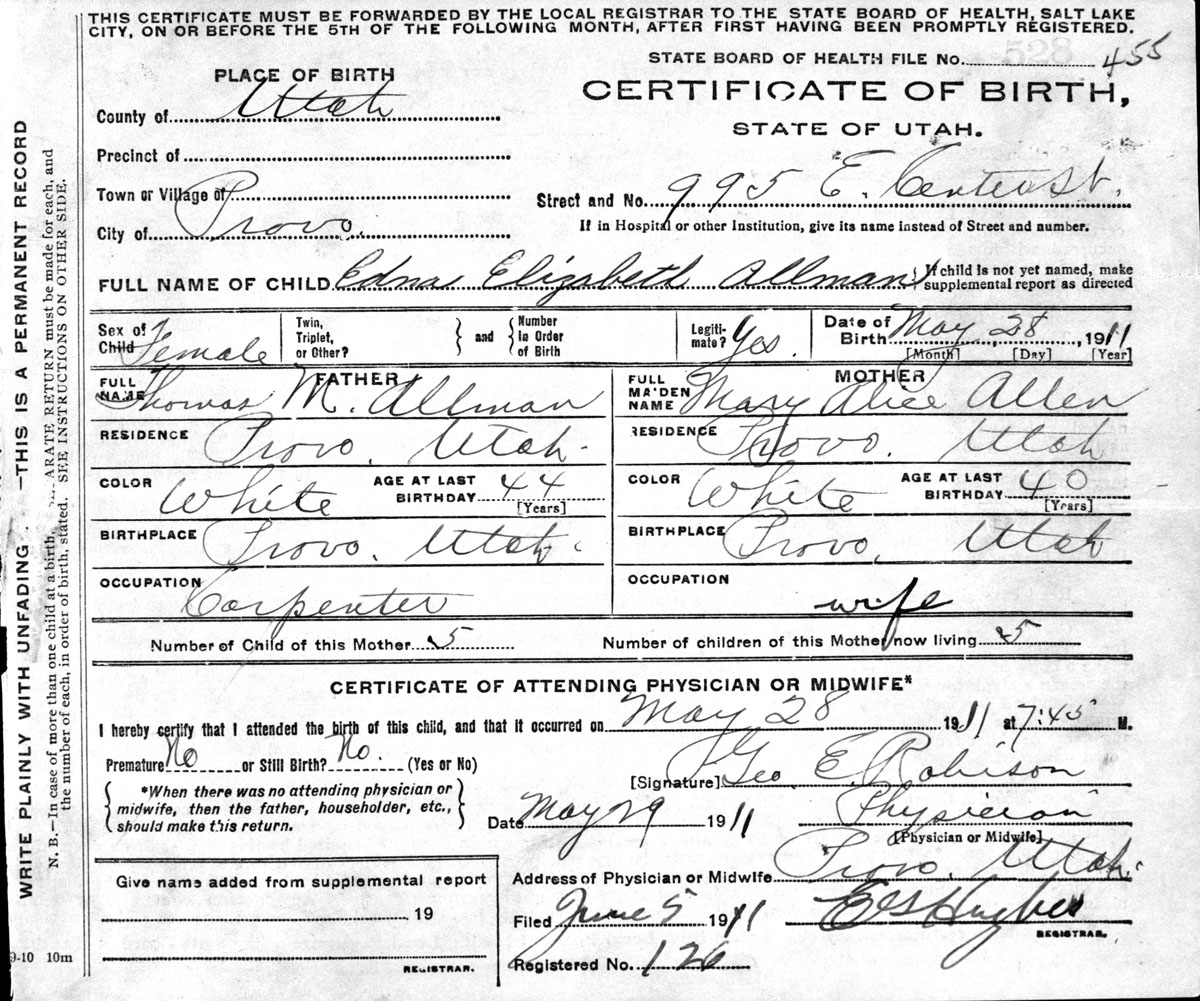 THIS CERTIFICATE MUST BE FORWARDED BY THE LOCAL REGISTRAR TO THE STATE BOARD OF HEALTH, SALT LAKE
CITY, ON OR BEFORE THE 5TH OF THE FOLLOWING MONTH, AFTER FIRST HAVING BEEN PROMPTLY REGISTERED.
STATE BOARD OF HEALTH FILE No. 455
PLACE OF BIRTH
CERTIFICATE OF BIRTH,
County of Utah
STATE OF UTAH.
Precinct of
Town or Village of
Street and No. 995 E. Center St.
City of Provo.
If in Hospital or other Institution, give its name instead of Street and number.
FULL NAME OF CHILD Edna Elizabeth Allman { If child is not yet named, make
supplemental report as directed
Sex of Child Female
Twin, Triplet, or Other? } and { Number in Order of Birth
Legiti-mate? Yes.
Date of Birth May 28, 1911
[Month] [Day] [Year]
FATHER
FULL NAME Thomas M. Allman
MOTHER
FULL MAIDEN NAME Mary Alice Allen
RESIDENCE Provo. Utah.
RESIDENCE Provo. Utah
COLOR White AGE AT LAST BIRTHDAY 44 [Years]
COLOR White AGE AT LAST BIRTHDAY 40 [Years]
BIRTHPLACE Provo. Utah.
BIRTHPLACE Provo, Utah
OCCUPATION Carpenter
OCCUPATION wife
Number of Child of this Mother 5
Number of children of this Mother now living 5
CERTIFICATE OF ATTENDING PHYSICIAN OR MIDWIFE*
I hereby certify that I attended the birth of this child, and that it occurred on May 28 1911 at 7:45 M.
Premature No or Still Birth? No. (Yes or No)
[Signature] Geo E. Robison
{ *When there was no attending physician or
midwife, then the father, householder, etc.,
should make this return. }
Date May 29 1911
Physician
[Physician or Midwife]
Address of Physician or Midwife Provo, Utah.
Give name added from supplemental report
19
REGISTRAR.
Filed June 5 1911
REGISTRAR.
Registered No. 126
9-10 10m
WRITE PLAINLY WITH UNFADING —THIS IS A PERMANENT RECORD
N. B.—In case of more than one child at a birth, ARATE RETURN must be made for each, and
the number of each, in order of birth, stated. SEE INSTRUCTIONS ON OTHER SIDE.